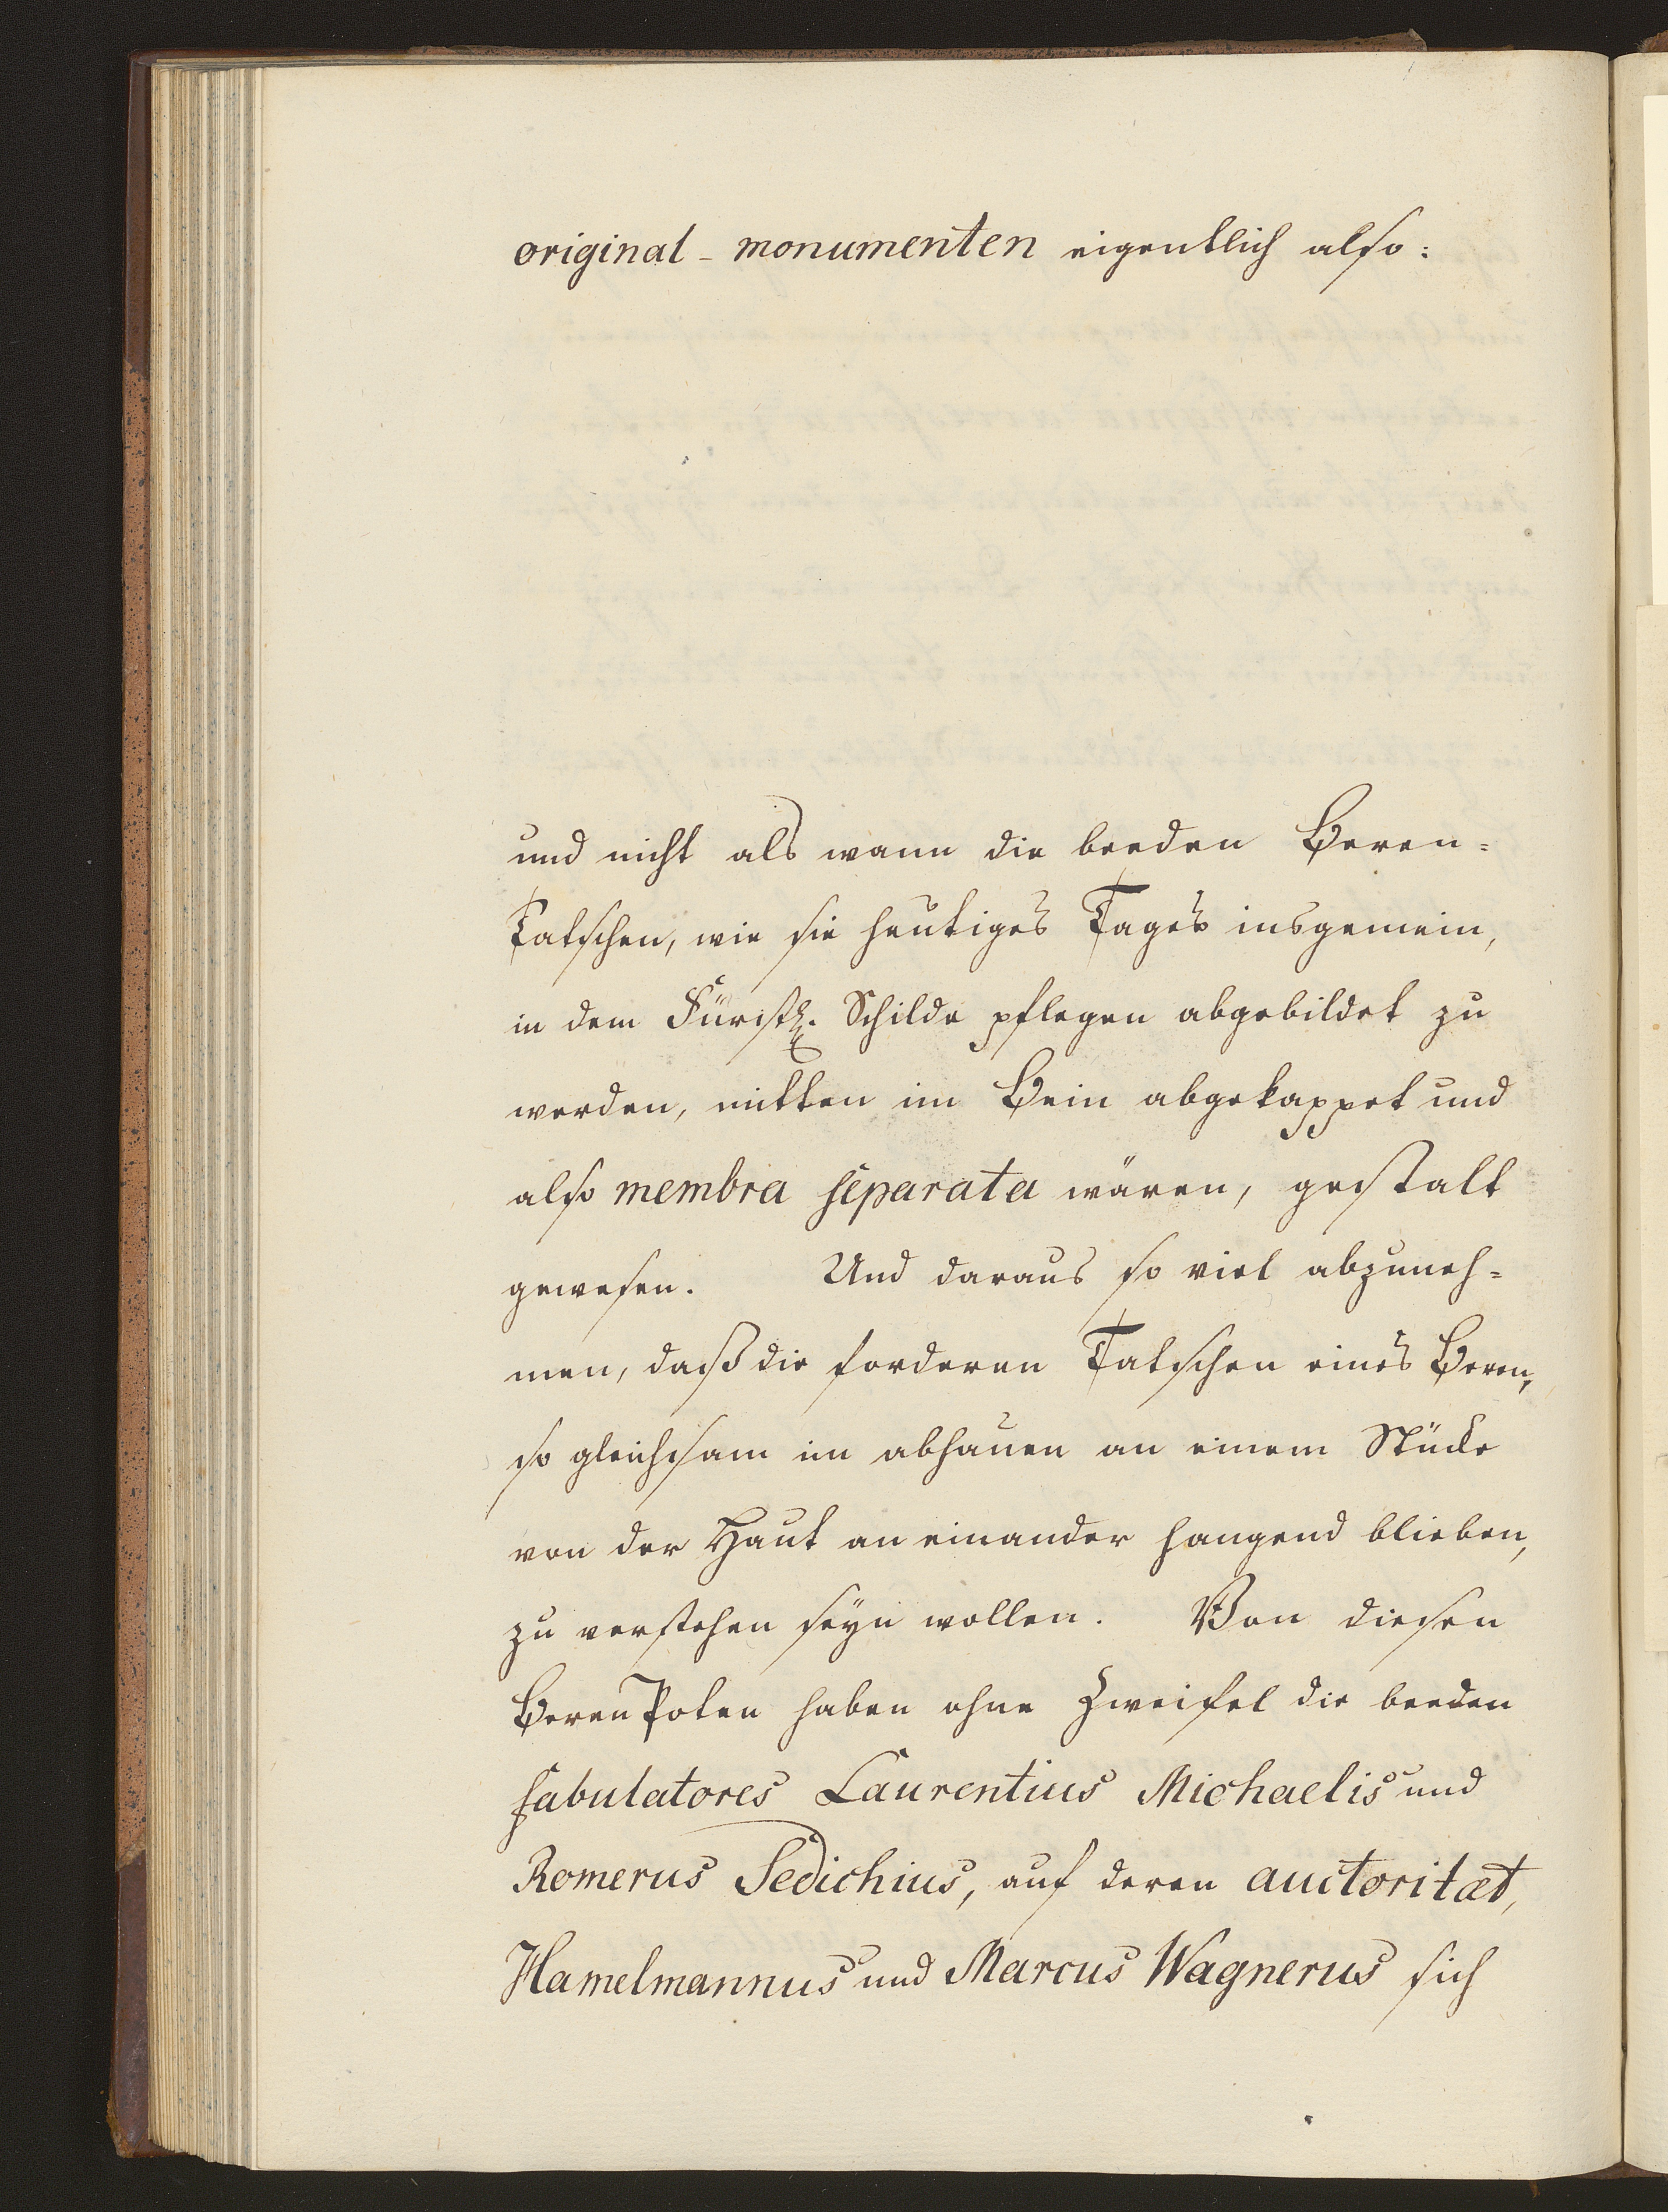 original-monumenten eigentlich also:
und nicht als wann die beeden Beren-
Tatschen, wie sie heutiges Tages insgemein,
in dem Fürstl. Schilde pflegen abgebildet zu
werden, mitten im Bein abgekappet und
also membra separata wären, gestalt
gewesen. Und daraus so viel abzuneh-
men, daß die forderen Tatschen eines Beren,
so gleichsam im abhauen an einem Stücke
von der Haut an einander hangend blieben,
zu verstehen seyn wollen. Von diesen
Beren Poten haben ohne Zweifel die beeden
fabulatores Laurentius Michaelis und
Romerus Sedichius, auf deren auctoritæt,
Hamelmannus und Marcus Wagnerus sich